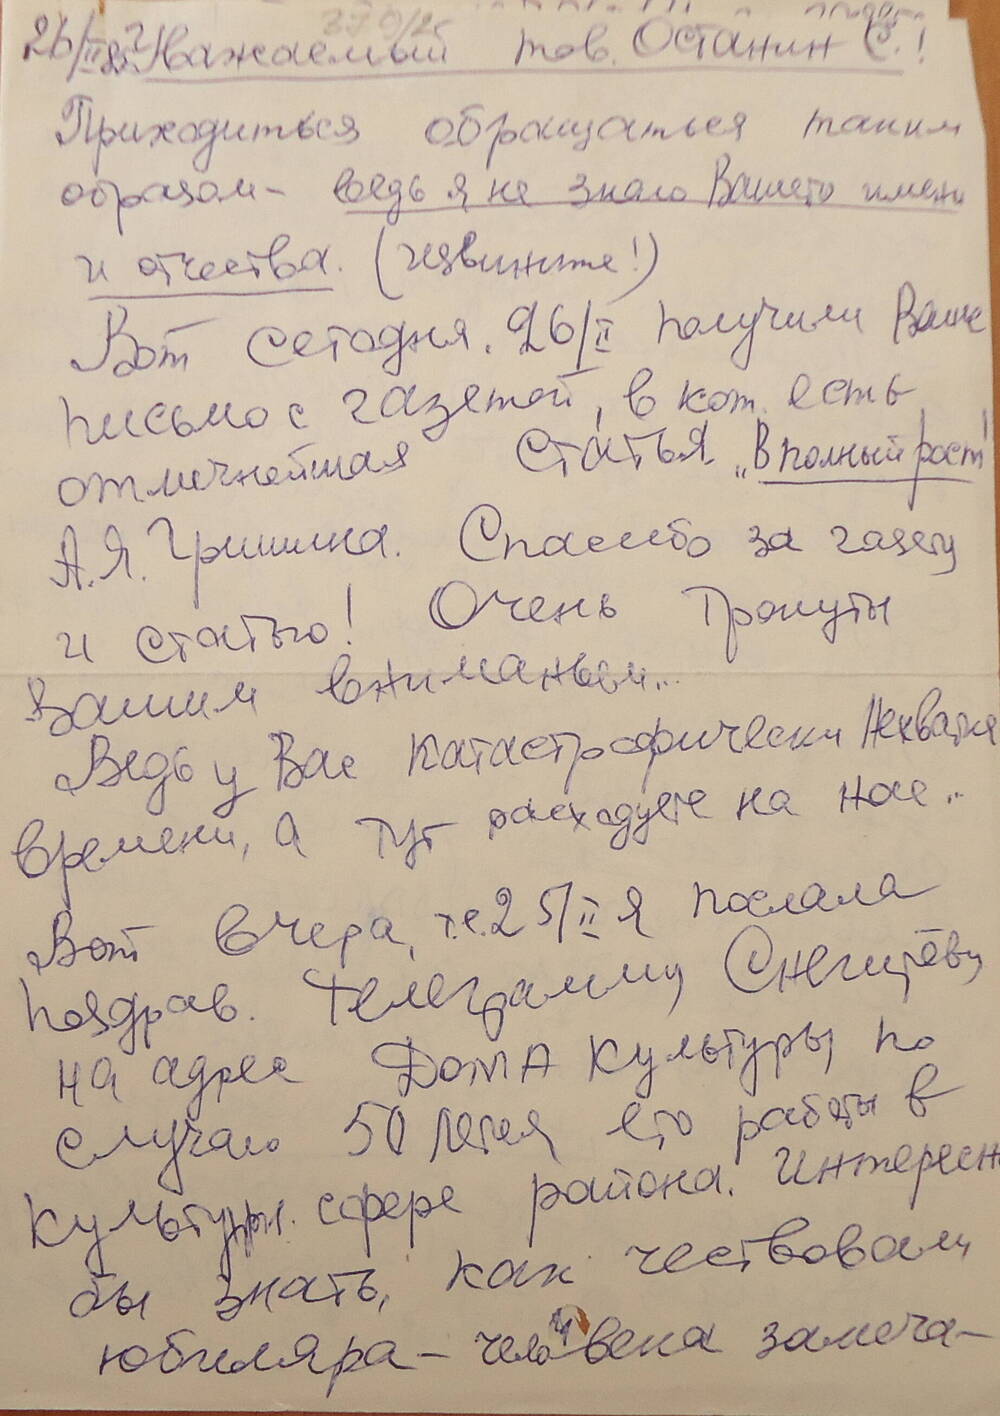 379/25
26/II 83 г. Уважаемый тов. Останин С.!
Приходиться обращаться таким
образом - ведь я не знаю Вашего имени
и отчества. (извините!)
Вот сегодня. 26/II получили Ваше
письмо с газетой, в кот. есть
отличнейшая статья „В полный рост"
А.Я. Гришина. Спасибо за газету
и статью! Очень тронуты
Вашим вниманьем...
Ведь у Вас катастрофически нехватка
времени, а тут расходуете на нас...
Вот вчера, т.е. 25/II я послала
поздрав. телеграмму Снегирёву
на адрес Дома культуры, по
случаю 50 летея его работы в
культурн. сфере района. Интересн
бы знать, как чествовали
юбиляра - человека замеча-